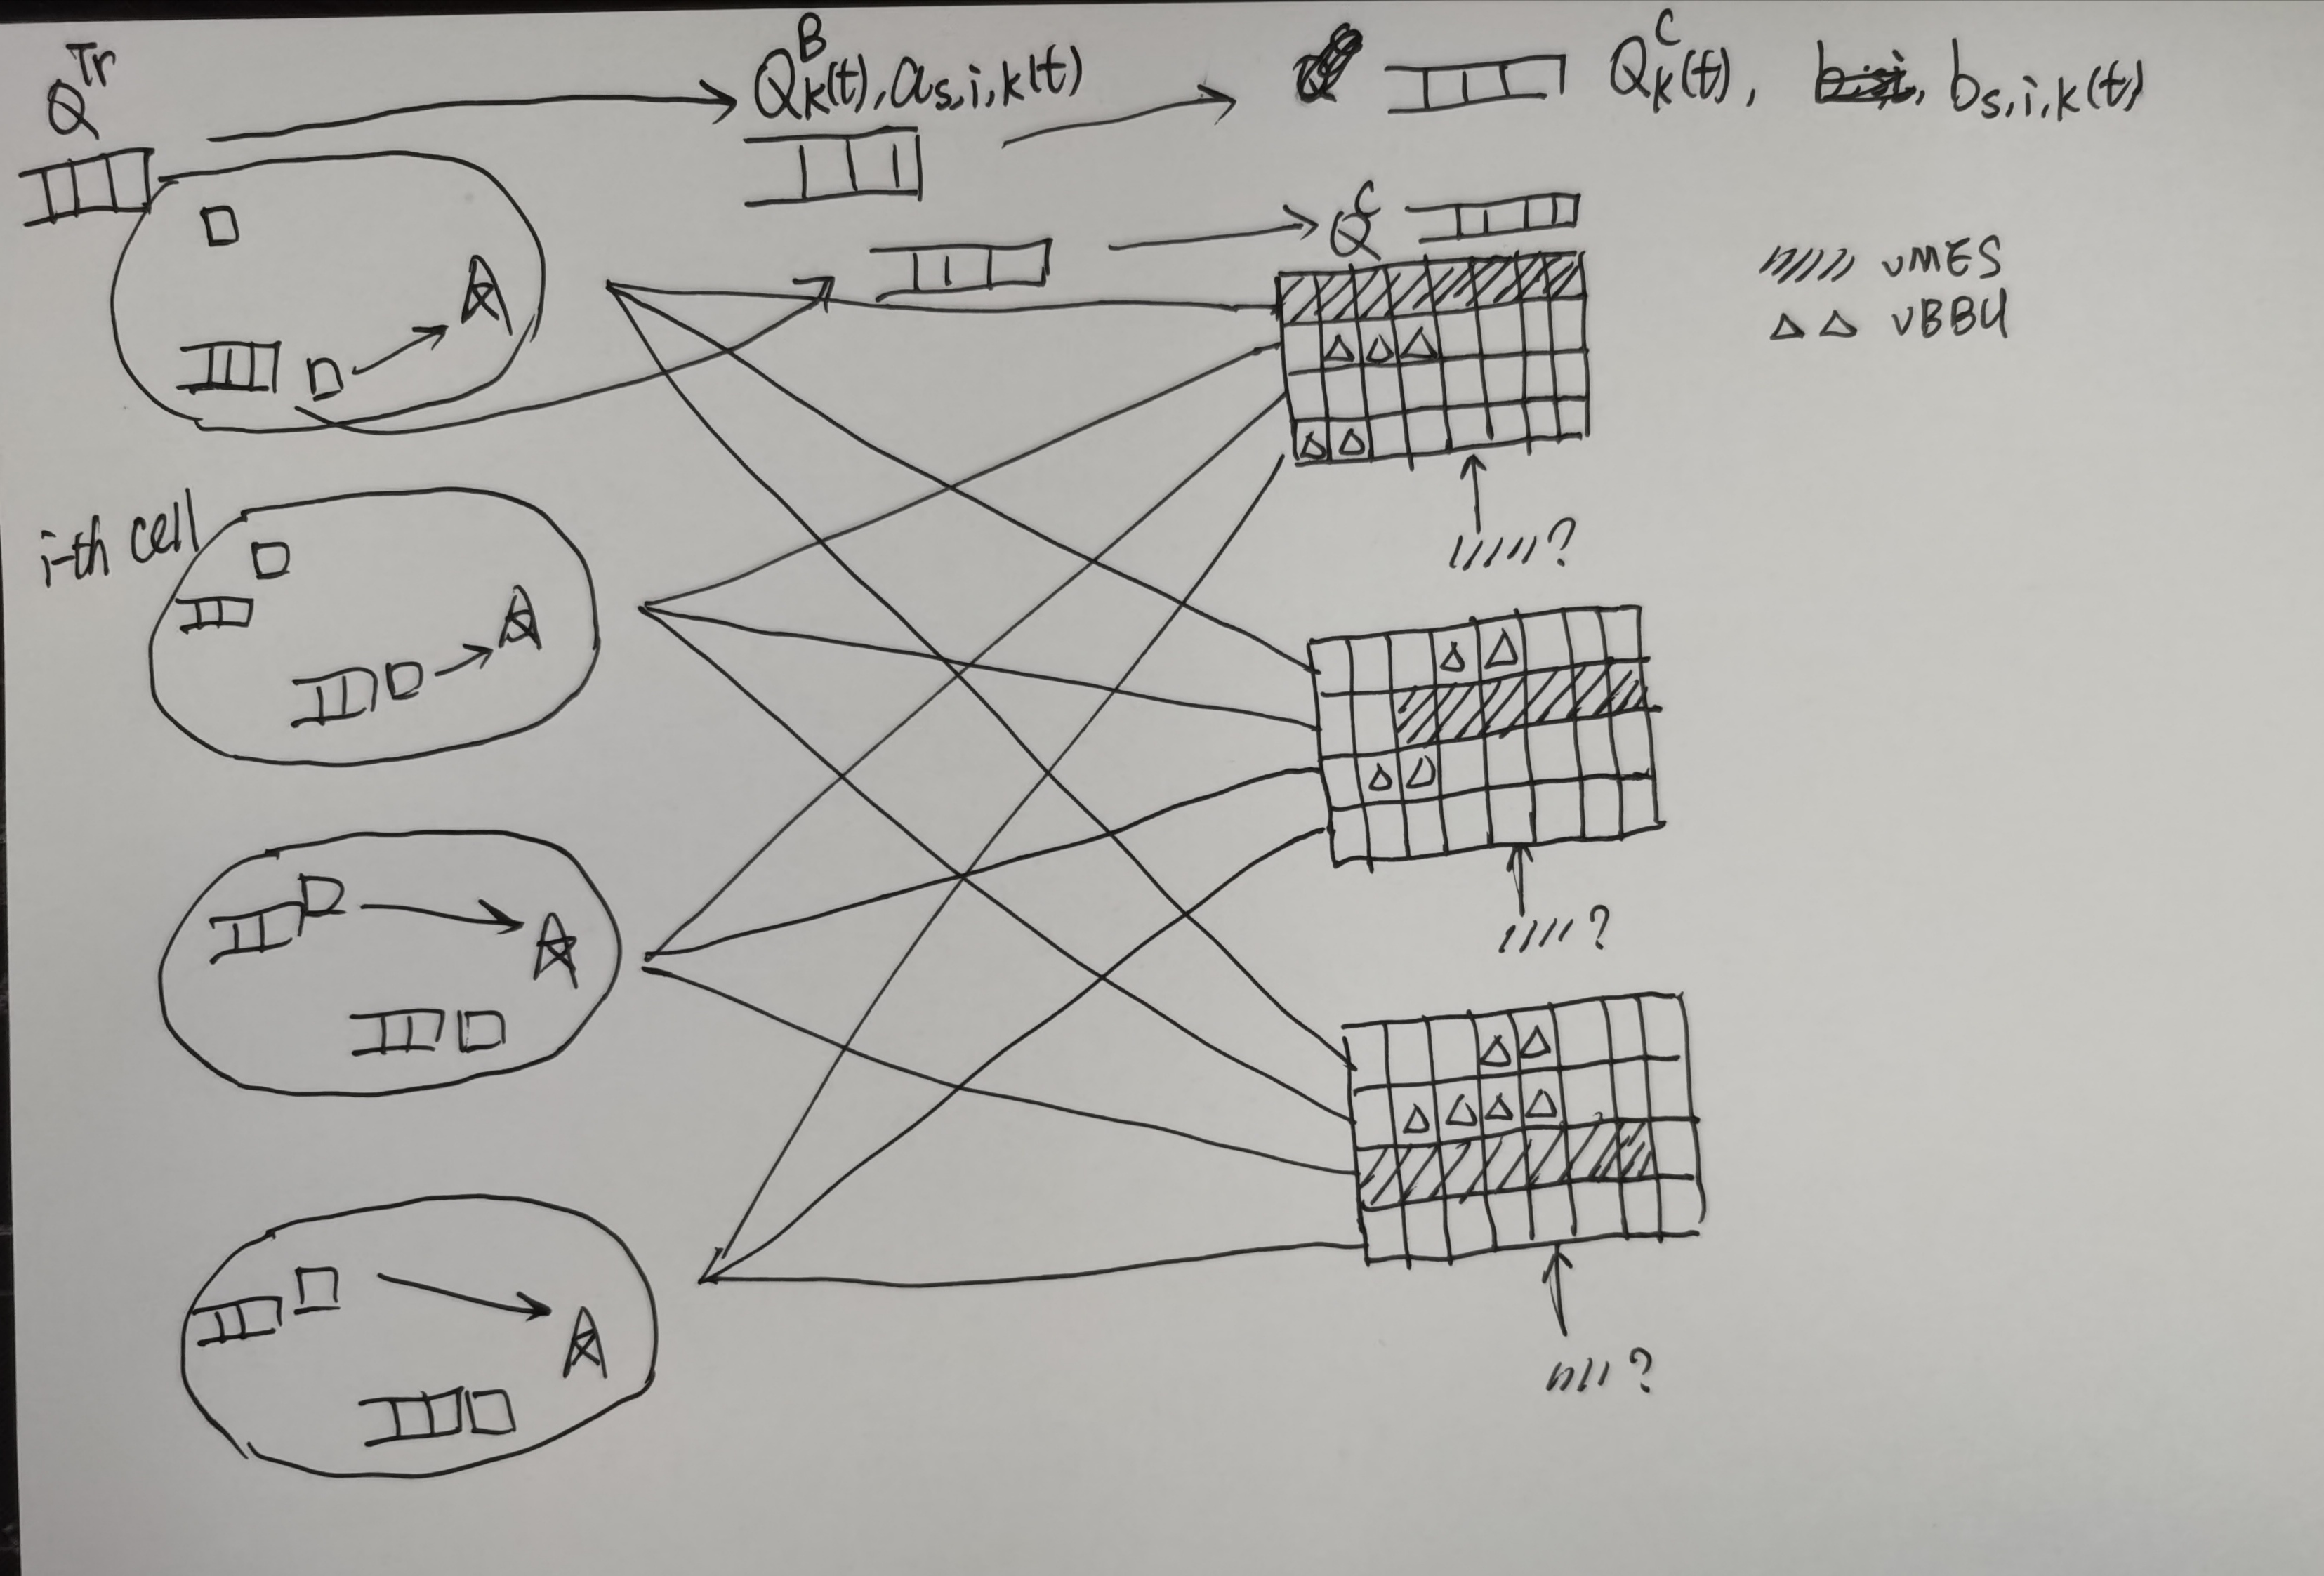 Q^Tr
Q_k^B(t), a_s,i,k(t)
Q_k^C(t), b_s,i,k(t)
Q^C
vMES
△ △ vBBU
i-th cell
?
?
?